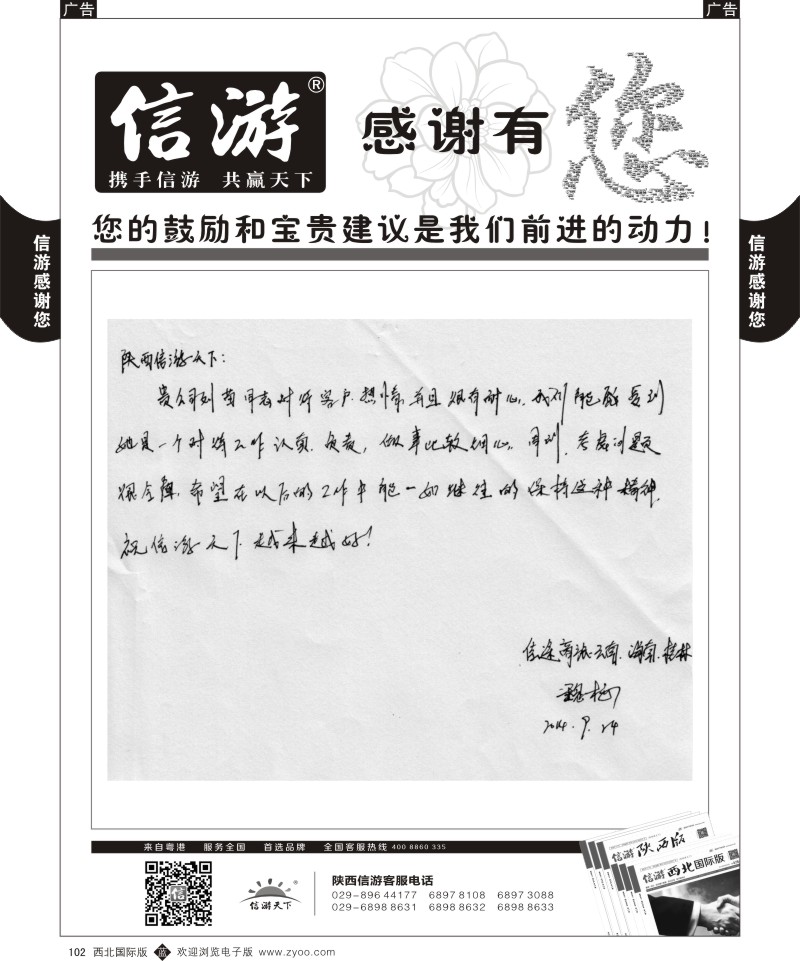 广告
广告
信游®
携手信游 共赢天下
感谢有
您
您的鼓励和宝贵建议是我们前进的动力！
信游感谢您
信游感谢您
陕西信游天下：
贵公司刘 同志对待客户热情，并且很有耐心。我们能感受到
她是一个对待工作认真、负责，做事比较细心、周到，考虑问题
很全面，希望在以后的工作中能一如继往的保持这种精神。
祝信游天下越来越好！
信途商旅·云南、海南、桂林
2014.9.24
来自粤港 服务全国 首选品牌 全国客服热线 400 8860 335
信游
信游天下
陕西信游客服电话
029-896 44177 6897 8108 6897 3088
029-6898 8631 6898 8632 6898 8633
信游 陕西版
信游 西北国际版
102 西北国际版 蓝 欢迎浏览电子版 www.zyoo.com